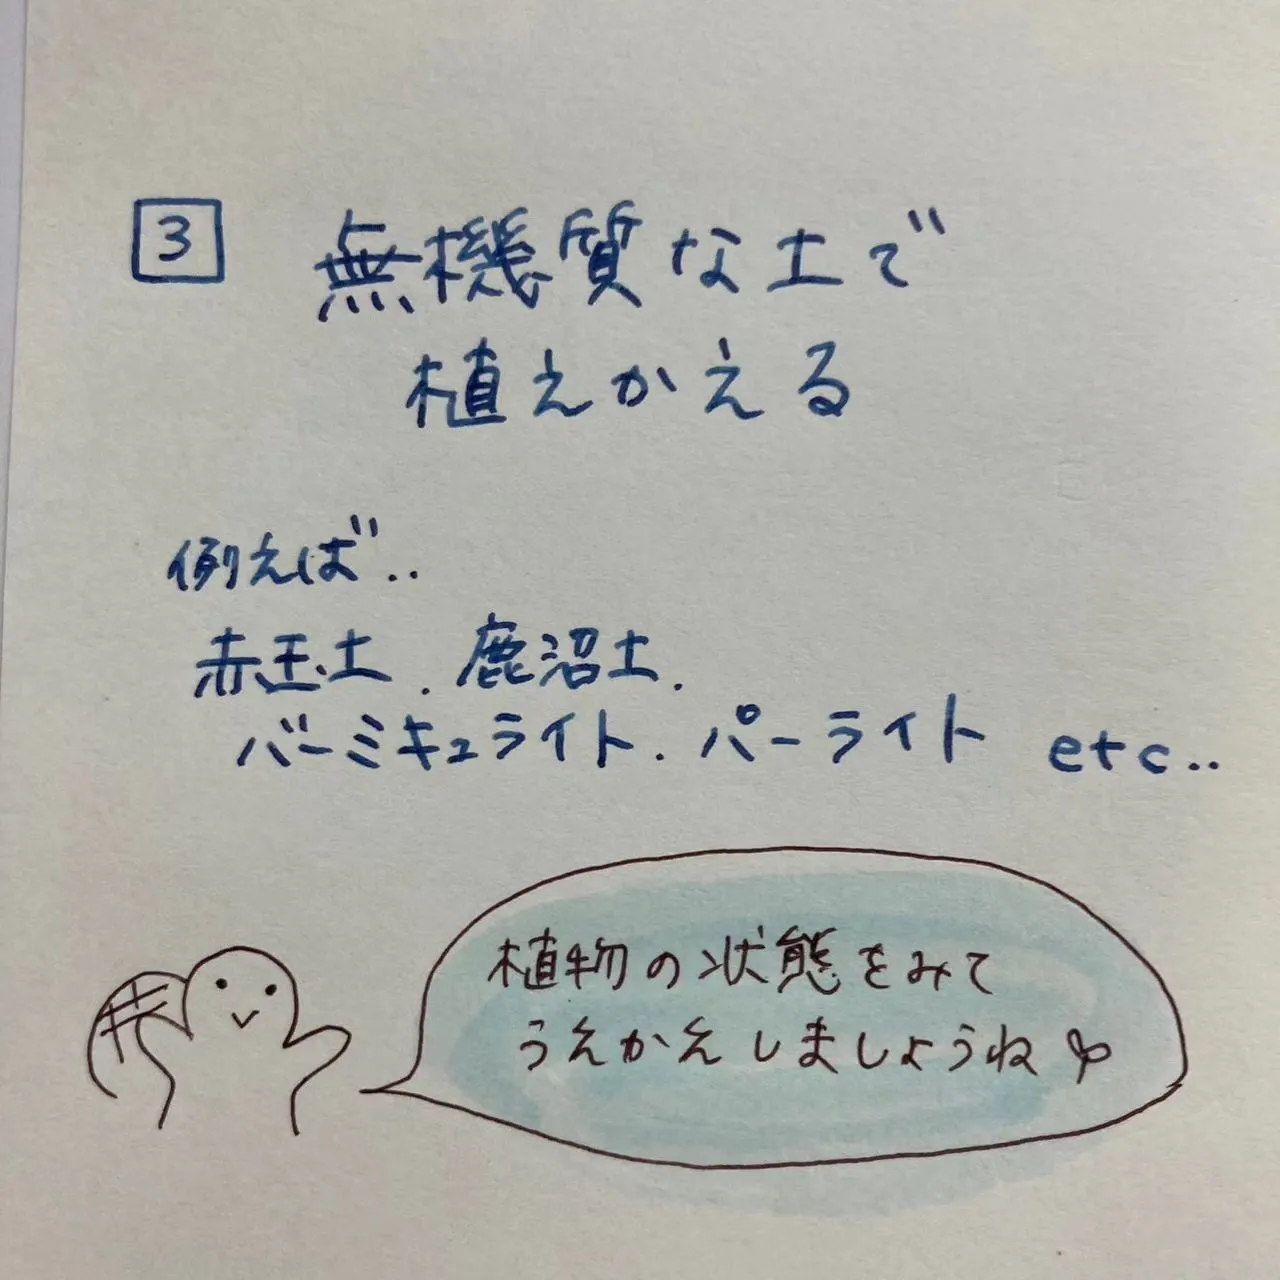 3 無機質な土で
植えかえる
例えば‥
赤玉土.鹿沼土.
バーミキュライト.パーライト etc‥
植物の状態をみて
うえかえしましょうね